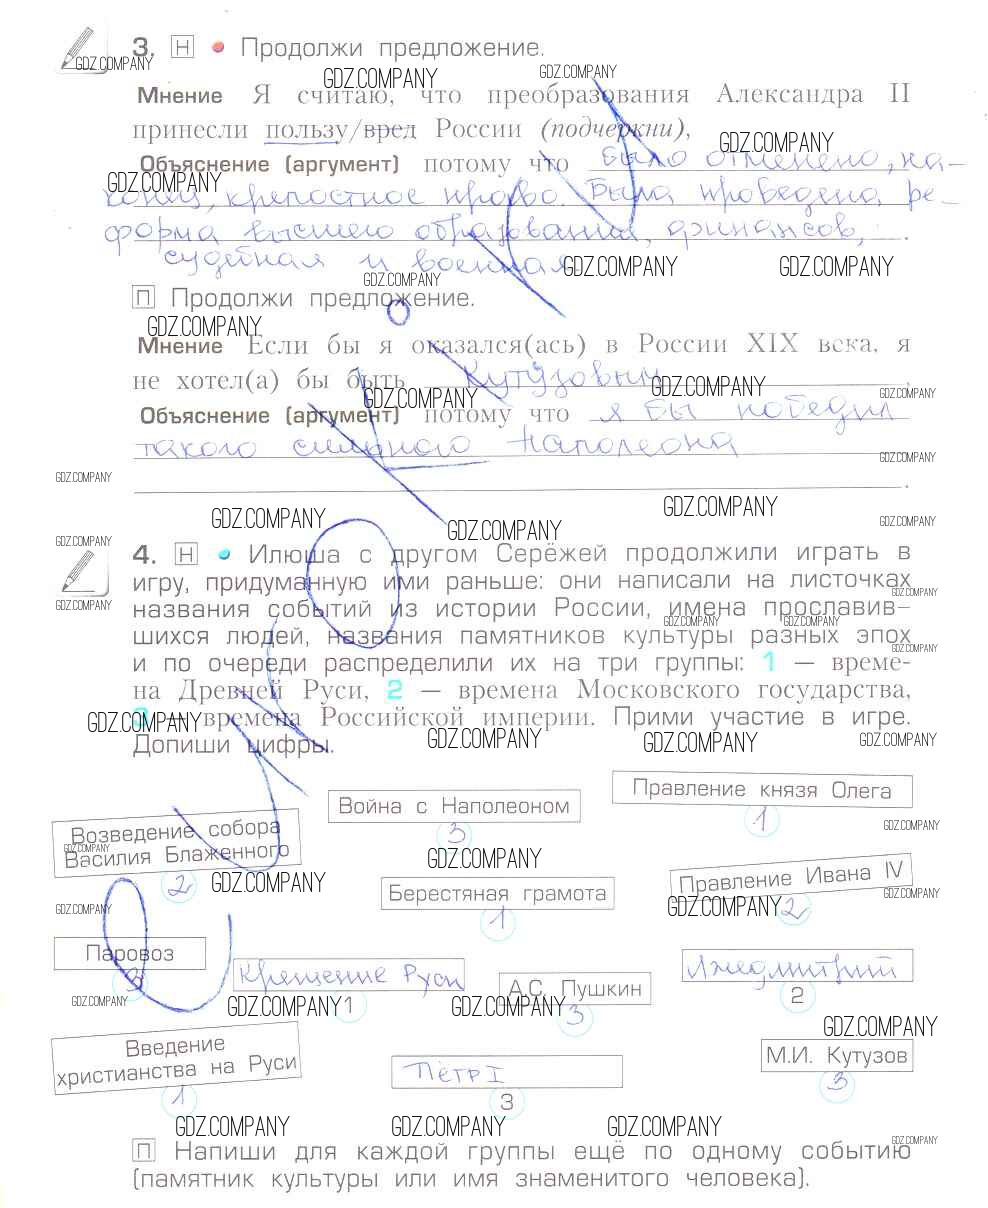 3. Н • Продолжи предложение.
Мнение Я считаю, что преобразования Александра II
принесли пользу/вред России (подчеркни),
Объяснение (аргумент) потому что было отменено, на-
конец, крепостное право. Была проведена ре-
форма высшего образования, финансов,
судебная и военная.
П Продолжи предложение.
Мнение Если бы я оказался(ась) в России XIX века, я
не хотел(а) бы быть Кутузовым,
Объяснение (аргумент) потому что я бы победил
такого сильного Наполеона.
4. Н • Илюша с другом Серёжей продолжили играть в
игру, придуманную ими раньше: они написали на листочках
названия событий из истории России, имена прославив-
шихся людей, названия памятников культуры разных эпох
и по очереди распределили их на три группы: 1 — време-
на Древней Руси, 2 — времена Московского государства,
3 — времена Российской империи. Прими участие в игре.
Допиши цифры.
Правление князя Олега
1
Война с Наполеоном
3
Возведение собора
Василия Блаженного
2
Берестяная грамота
1
Правление Ивана IV
2
Паровоз
3
Крещение Руси
1
А.С. Пушкин
3
Лжедмитрий
2
Введение
христианства на Руси
1
Пётр I
3
М.И. Кутузов
3
П Напиши для каждой группы ещё по одному событию
(памятник культуры или имя знаменитого человека).
GDZ.COMPANY